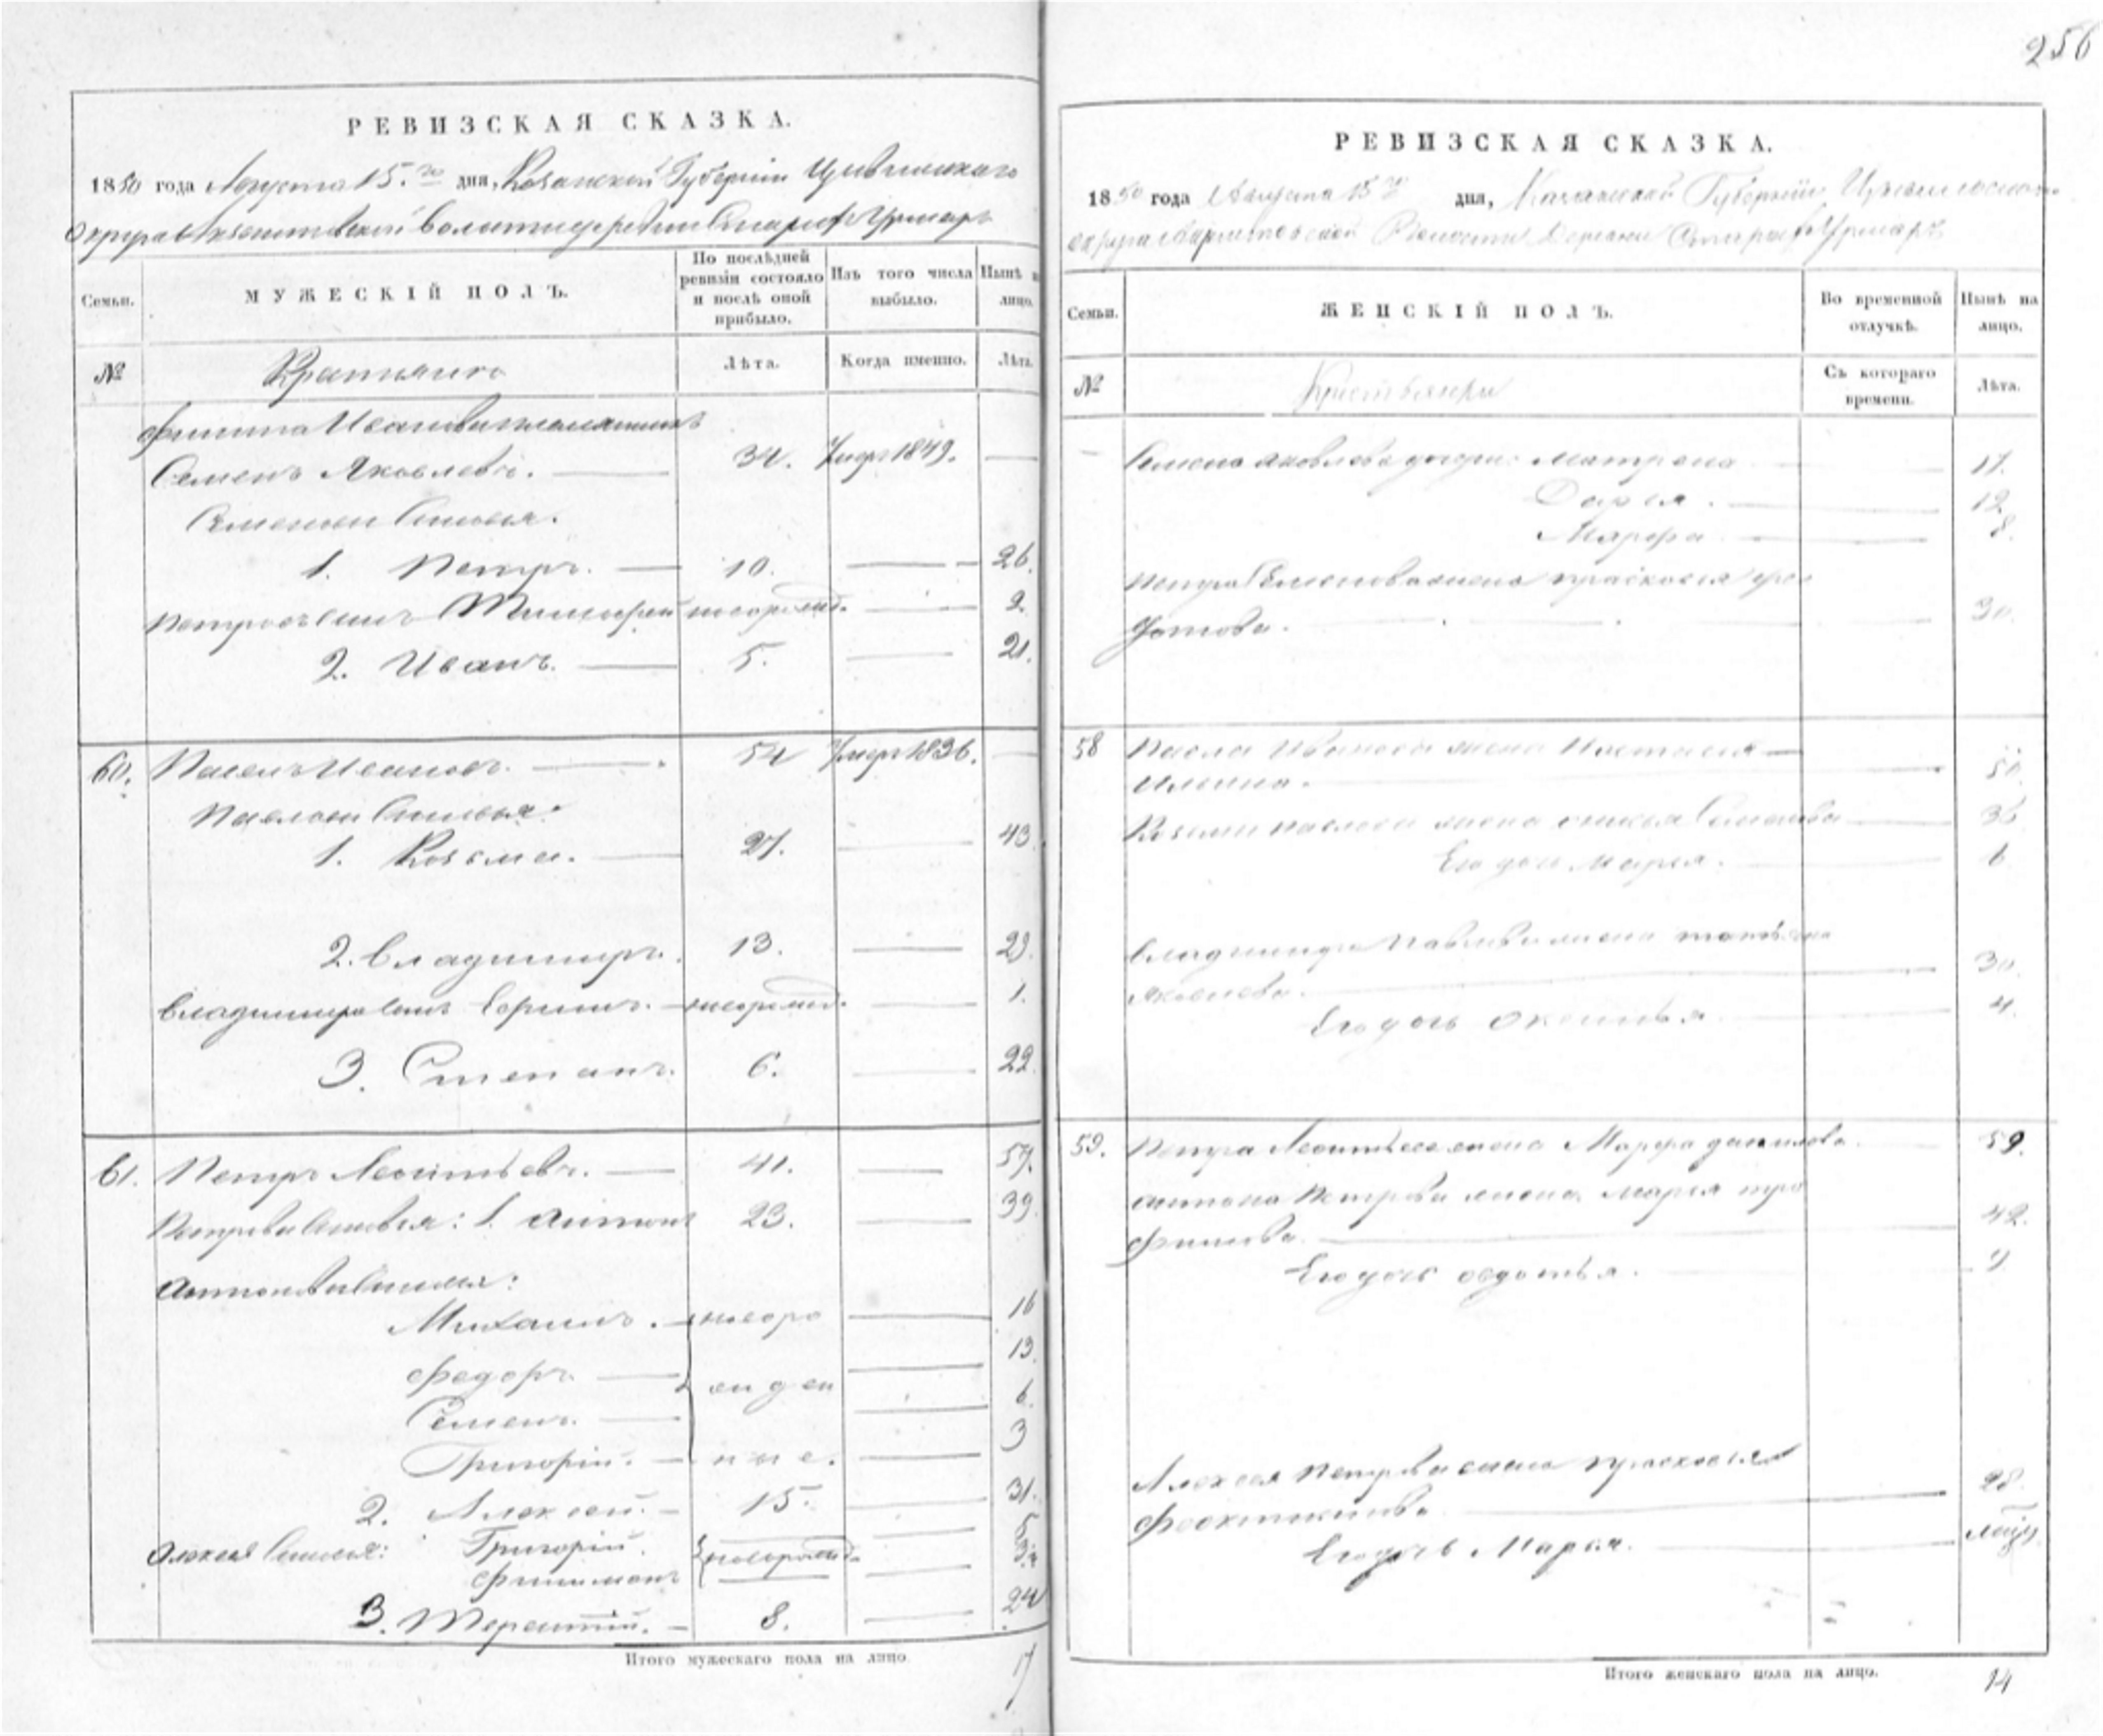 256
РЕВИЗСКАЯ СКАЗКА.
1850 года Августа 15.го дня, Казанской Губернiи Цивильскаго
Округа волости деревни Старыхъ Урмаръ
Семьи.
МУЖЕСКIЙ ПОЛЪ.
По послѣдней ревизiи состояло и послѣ оной прибыло.
Изъ того числа выбыло.
Нынѣ на лицо.
№
Крестьяне
Лѣта.
Когда именно.
Лѣта.
Филипа Иванова племянникъ
Семенъ Яковлевъ. 34. Умеръ 1849.
Семеновы Сыновья.
1. Петръ. 10. 26.
Петровъ Сынъ Тимофей новорожд. 2.
2. Иванъ. 5. 21.
60. Павелъ Ивановъ. 54 Умеръ 1836.
Павловы Сыновья:
1. Козьма. 27. 43
2. Владимиръ. 13. 29.
Владимира Сынъ Ефримъ. новорожд. 1.
3. Степанъ. 6. 22.
61. Петръ Леонтьевъ. 41. 57.
Петровы Сыновья: 1. Антонъ 23. 39.
Антоновы Сыновья:
Михаилъ. новоро 16
Федоръ жден 13.
Семенъ. 6.
Григорiй. ные. 3
2. Алексей. 15. 31.
Алексея Сыновья: Григорiй. новорожд. 5
Филимонъ 3
3. Терентiй. 8. 24
Итого мужескаго пола на лицо 17
РЕВИЗСКАЯ СКАЗКА.
1850 года Августа 15го дня, Казанской Губернiи Цивильскаго
округа Волости Деревни Старыхъ Урмаръ
Семьи.
ЖЕНСКIЙ ПОЛЪ.
Во временной отлучкѣ.
Нынѣ на лицо.
№
Съ котораго времени.
Лѣта.
Семена Яковлева дочери: Матрена 17.
Дарья. 12.
Марфа 8.
Петра Семенова жена Прасковья
30.
58 Павла Иванова жена Настасья
Ильина. 50.
Козьми Павлова жена Семенова 36
Его дочь Марья. 6
Владимира Павлова жена Татьяна
Яковлева. 30.
Его дочь 4.
59. Петра Леонтьева жена Марфа Данилова. 59.
Антона Петрова жена Марья Тро
фимова. 42.
Его дочь Авдотья. 9
Алексея Петрова жена Прасковья
Феоктистова 28.
Его дочь Марья.
Итого женскаго пола на лицо. 14